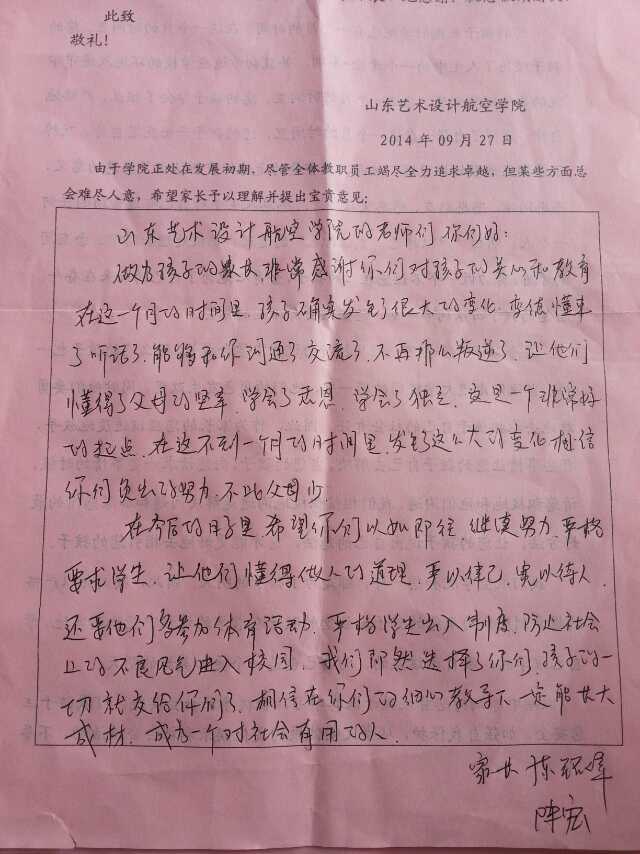 此致
敬礼！
山东艺术设计航空学院
2014 年 09 月 27 日
由于学院正处在发展初期，尽管全体教职员工竭尽全力追求卓越，但某些方面总
会难尽人意，希望家长予以理解并提出宝贵意见：
山东艺术设计航空学院的老师们 你们好：
做为孩子的家长非常感谢你们对孩子的关心和教育
在这一个月的时间里，孩子确实发生了很大的变化，变德懂事
了听话了，能够和你沟通了交流了，不再那么叛逆了，让他们
懂得了父母的艰辛，学会了感恩，学会了独立，这是一个非常好
的起点，在这不到一个月的时间里，发生了这么大的变化相信
你们负出的努力，不比父母少。
在今后的日子里，希望你们以如即往 继续努力，严格
要求学生，让他们懂得做人的道理，严以律己，宽以待人，
还要他们多参加体育活动，严格学生出入制度，防止社会
上的不良风气曲入校园，我们即然选择了你们，孩子的一
切就交给你们了，相信在你们的细心教导下一定能长大
成材，成为一个对社会有用的人。
家长 陈